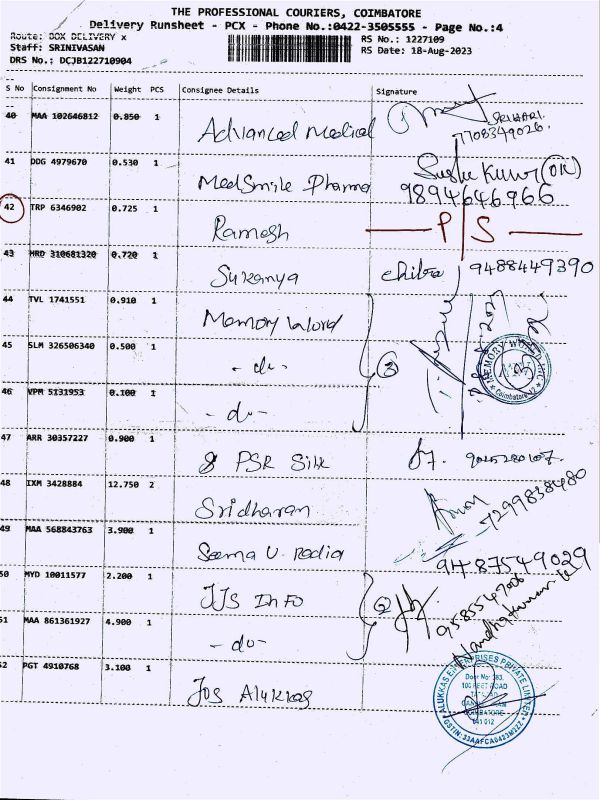 THE PROFESSIONAL COURIERS, COIMBATORE
Delivery Runsheet - PCX - Phone No.:0422-3505555 - Page No.:4
Route: BOX DELIVERY x
RS No.: 1227109
Staff: SRINIVASAN
RS Date: 18-Aug-2023
DRS No.: DCJB122710904
S No Consignment No Weight PCS Consignee Details Signature
40 MAA 102646812 0.850 1 Advanced Medical SRIHARI. 7708349026.
41 DDG 4979670 0.530 1 MedSmile Pharma Kumar 9894646966
42 TRP 6346902 0.725 1 Ramesh P S
43 HRD 310681320 0.720 1 Sukanya Chitra 9488449390
44 TVL 1741551 0.910 1 Memory World
45 SLM 326506340 0.500 1 - do - 3
MEMORY WORLD Coimbatore
46 VPM 5131953 0.100 1 - do -
47 ARR 30357227 0.900 1 PSR Silk
48 IXM 3428884 12.750 2 Sridharan 7299838480
49 MAA 568843763 3.900 1 Seema U. Padia 9487549029
50 MYD 10011577 2.200 1 JJS Info 2
51 MAA 861361927 4.900 1 - do - Nandhakumar
52 PGT 4910768 3.100 1 Jos Alukkas
ALUKKAS ENTERPRISES PRIVATE LIMITED
Door No: 383,
100 FEET ROAD
COIMBATORE
641 012